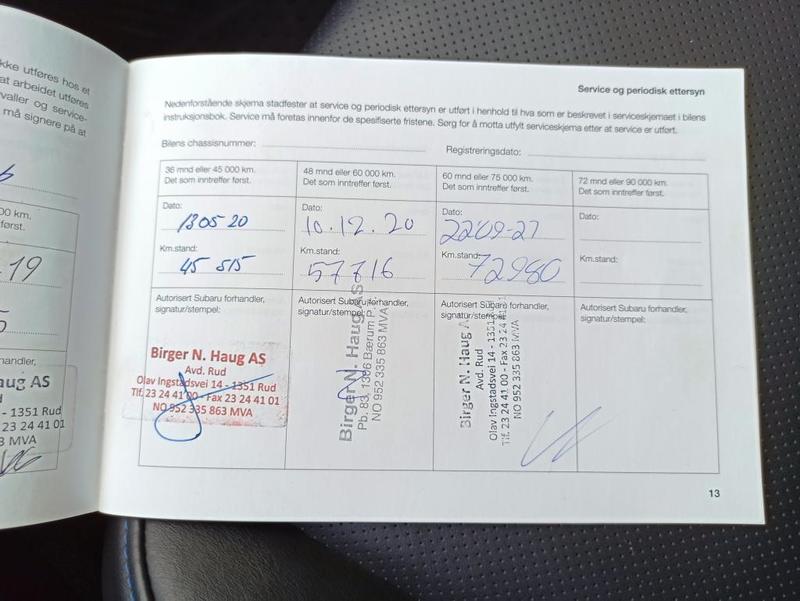 kke utføres hos et
at arbeidet utføres
valler og service-
må signere på at
00 km.
19
handler,
aug AS
- 1351 Rud
23 24 41 01
3 MVA
Service og periodisk ettersyn
Nedenforstående skjema stadfester at service og periodisk ettersyn er utført i henhold til hva som er beskrevet i serviceskjemaet i bilens
instruksjonsbok. Service må foretas innenfor de spesifiserte fristene. Sørg for å motta utfylt serviceskjema etter at service er utført.
Bilens chassisnummer:
Registreringsdato:
36 mnd eller 45 000 km.
Det som inntreffer først.
Dato:
13 05 20
Km.stand:
45 515
Autorisert Subaru forhandler,
signatur/stempel:
Birger N. Haug AS
Avd. Rud
Olav Ingstadsvei 14 - 1351 Rud
Tlf. 23 24 41 00 - Fax 23 24 41 01
NO 952 335 863 MVA
48 mnd eller 60 000 km.
Det som inntreffer først.
Dato:
10.12.20
Km.stand:
57716
Autorisert Subaru forhandler,
signatur/stempel:
Birger N. Haug AS
Pb. 83, 1306 Bærum P.
NO 952 335 863 MVA
60 mnd eller 75 000 km.
Det som inntreffer først.
Dato:
2209-21
Km.stand:
72980
Autorisert Subaru forhandler,
signatur/stempel:
Birger N. Haug A
Avd. Rud
Olav Ingstadsvei 14 - 1351
Tlf. 23 24 41 00 - Fax 23 24 41
NO 952 335 863 MVA
72 mnd eller 90 000 km.
Det som inntreffer først.
Dato:
Km.stand:
Autorisert Subaru forhandler,
signatur/stempel:
13